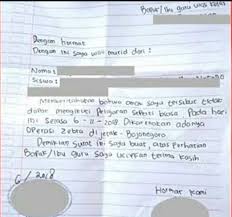 Bapak / Ibu guru wali kelas
Dengan hormat
Dengan ini saya wali murid dari :
Nama :
Siswa :
Memberitahukan bahwa anak saya tersebut tidak
dapat mengikuti pelajaran seperti biasa Pada hari
ini Selasa 6 - 11 - 2018 Dikarenakan adanya
Operasi Zebra di jetak - Bojonegoro
Demikian Surat ini saya buat, atas Perhatian
Bapak/Ibu guru saya ucapkan terima kasih
6/ 2018
Hormat kami